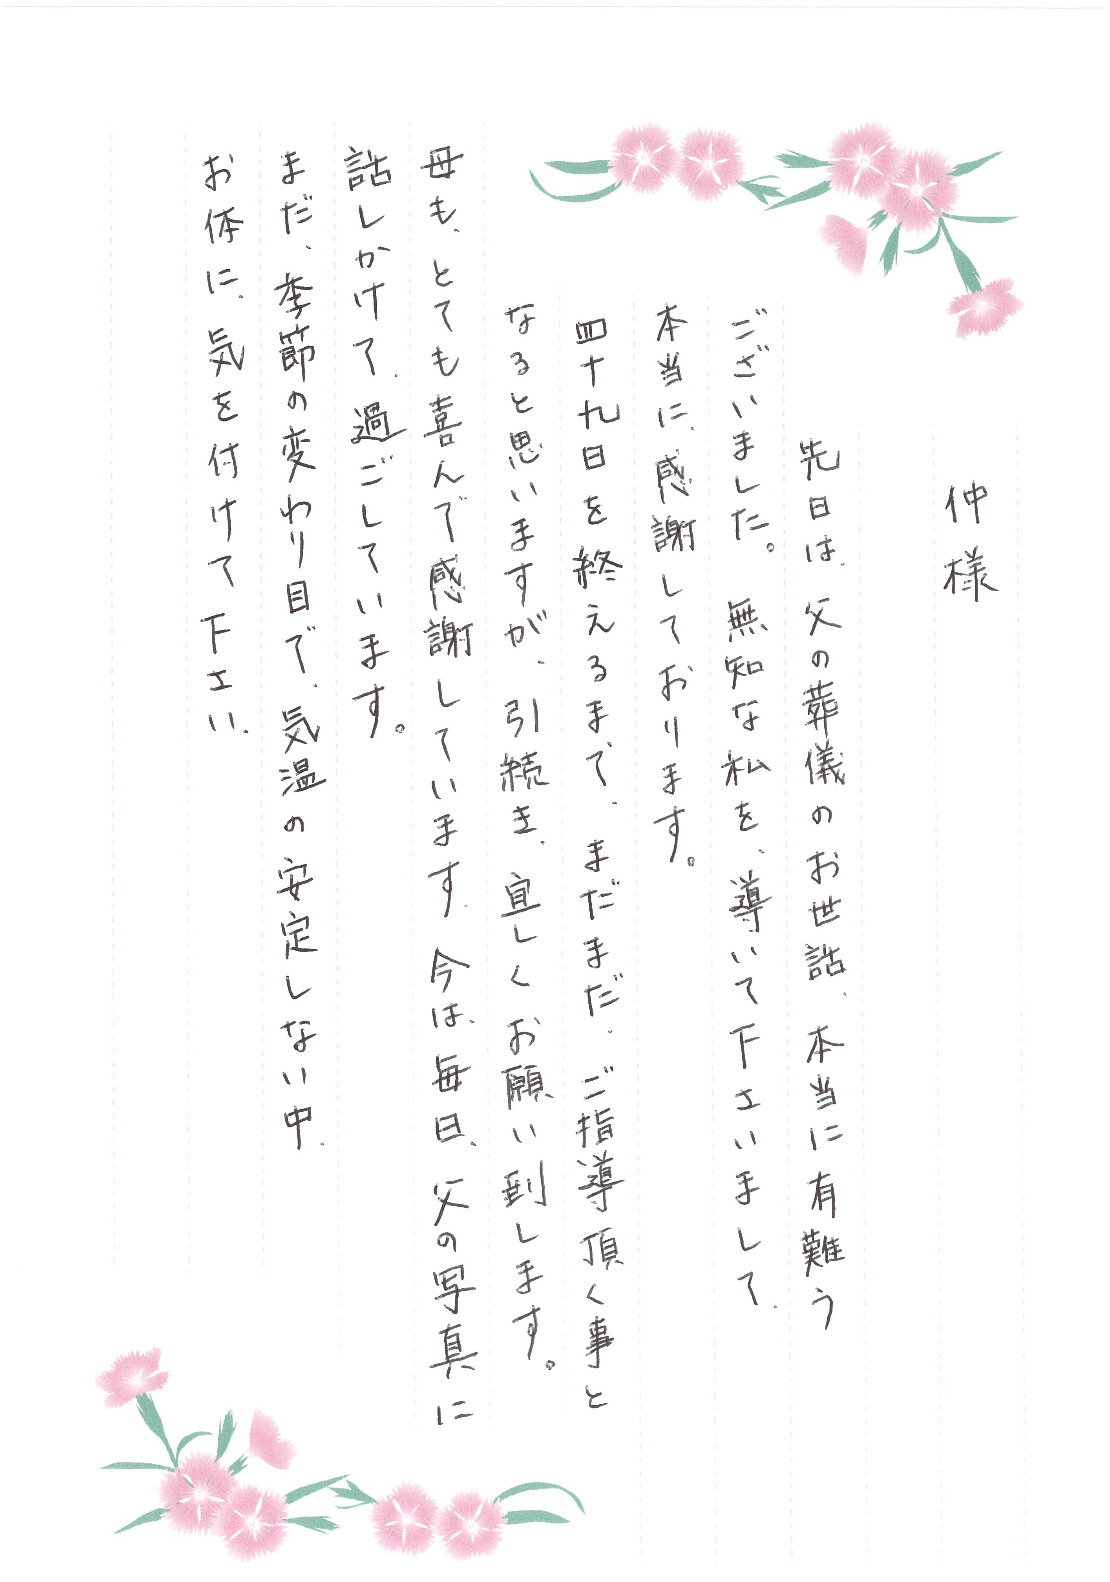 仲様
先日は、父の葬儀のお世話、本当に有難う
ございました。無知な私を、導いて下さいまして、
本当に、感謝しております。
四十九日を終えるまで、まだまだ、ご指導頂く事と
なると思いますが、引続き、宜しくお願い到します。
母も、とても喜んで感謝しています、今は、毎日、父の写真に
話しかけて、過ごしています。
まだ、季節の変わり目で、気温の安定しない中、
お体に、気を付けて下さい、